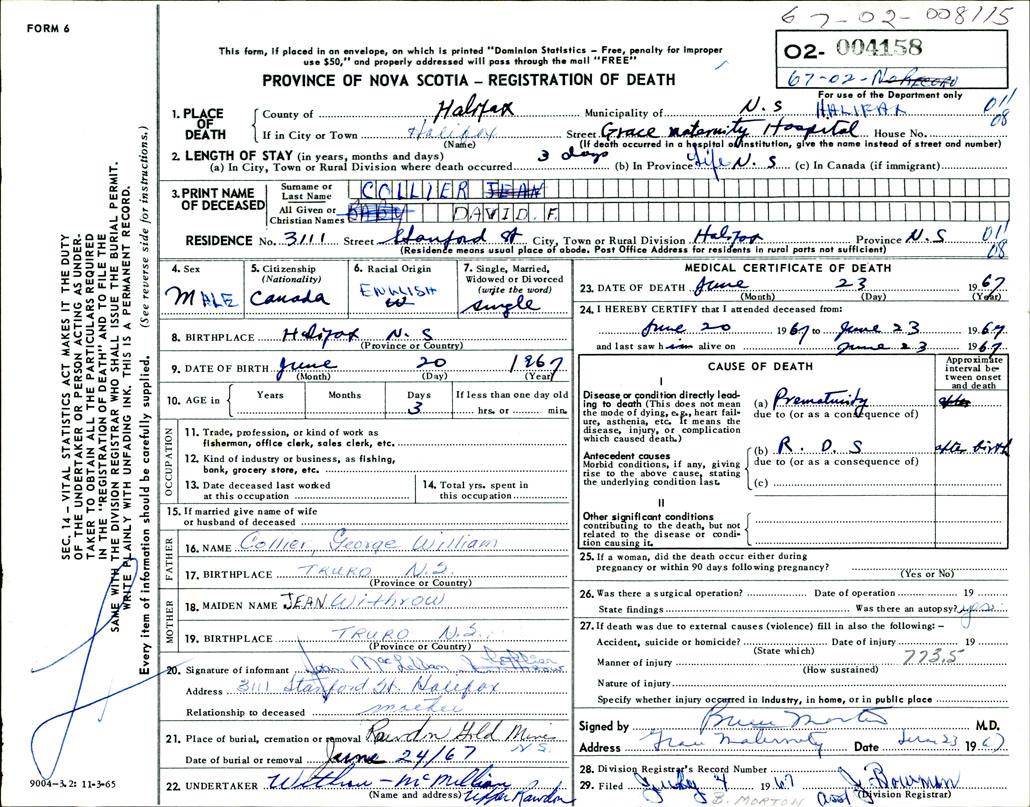 67-02-008115
FORM 6
02- 004158
This form, if placed in an envelope, on which is printed "Dominion Statistics – Free, penalty for improper
use $50," and properly addressed will pass through the mail "FREE"
67-02-No RECORD
For use of the Department only
PROVINCE OF NOVA SCOTIA – REGISTRATION OF DEATH
1. PLACE OF DEATH
County of Halifax Municipality of N.S HALIFAX 011
If in City or Town Halifax Street Grace Maternity Hospital House No. 08
(Name) (If death occurred in a hospital or institution, give the name instead of street and number)
2. LENGTH OF STAY (in years, months and days)
(a) In City, Town or Rural Division where death occurred 3 days (b) In Province Life N.S (c) In Canada (if immigrant)
3. PRINT NAME OF DECEASED
Surname or Last Name COLLIER JEAN
All Given or Christian Names BABY DAVID. F.
RESIDENCE No. 3111 Street Stanford St City, Town or Rural Division Halifax Province N.S 011
(Residence means usual place of abode. Post Office Address for residents in rural parts not sufficient) 08
4. Sex
MALE
5. Citizenship
(Nationality)
Canada
6. Racial Origin
ENGLISH
7. Single, Married,
Widowed or Divorced
(write the word)
single
8. BIRTHPLACE Halifax N.S
(Province or Country)
9. DATE OF BIRTH June 20 1967
(Month) (Day) (Year)
10. AGE in Years Months Days If less than one day old
3 hrs. or min.
OCCUPATION
11. Trade, profession, or kind of work as
fisherman, office clerk, sales clerk, etc.
12. Kind of industry or business, as fishing,
bank, grocery store, etc.
13. Date deceased last worked
at this occupation
14. Total yrs. spent in
this occupation
15. If married give name of wife
or husband of deceased
FATHER
16. NAME Collier, George William
17. BIRTHPLACE TRURO N.S.
(Province or Country)
MOTHER
18. MAIDEN NAME JEAN Withrow
19. BIRTHPLACE TRURO N.S.
(Province or Country)
20. Signature of informant Collier
Address 3111 Stanford St. Halifax
Relationship to deceased mother
21. Place of burial, cremation or removal Rawdon Gold Mines
N.S.
Date of burial or removal June 24/67
22. UNDERTAKER
(Name and address) Upper Rawdon
MEDICAL CERTIFICATE OF DEATH
23. DATE OF DEATH June 23 1967
(Month) (Day) (Year)
24. I HEREBY CERTIFY that I attended deceased from:
June 20 1967 to June 23 1967
and last saw him alive on June 23 1967
CAUSE OF DEATH
Approximate
interval be-
tween onset
and death
I
Disease or condition directly lead-
ing to death (This does not mean
the mode of dying, e.g., heart fail-
ure, asthenia, etc. It means the
disease, injury, or complication
which caused death.)
(a) Prematurity
due to (or as a consequence of)
Antecedent causes
Morbid conditions, if any, giving
rise to the above cause, stating
the underlying condition last.
(b) R. D. S after birth
due to (or as a consequence of)
(c)
II
Other significant conditions
contributing to the death, but not
related to the disease or condi-
tion causing it.
25. If a woman, did the death occur either during
pregnancy or within 90 days following pregnancy?
(Yes or No)
26. Was there a surgical operation? Date of operation 19
State findings Was there an autopsy? yes
27. If death was due to external causes (violence) fill in also the following: –
Accident, suicide or homicide? Date of injury 19
(State which)
773.5
Manner of injury
(How sustained)
Nature of injury
Specify whether injury occurred in Industry, in home, or in public place
Signed by Bruce Morton M.D.
Address Grace Maternity Date June 23 1967
28. Division Registrar's Record Number
29. Filed July 4 1967 J. Bowman
B. MORTON (Division Registrar)
SEC. 14 – VITAL STATISTICS ACT MAKES IT THE DUTY
OF THE UNDERTAKER OR PERSON ACTING AS UNDER-
TAKER TO OBTAIN ALL THE PARTICULARS REQUIRED
IN THE "REGISTRATION OF DEATH" AND TO FILE THE
SAME WITH THE DIVISION REGISTRAR WHO SHALL ISSUE THE BURIAL PERMIT.
WRITE PLAINLY WITH UNFADING INK. THIS IS A PERMANENT RECORD.
Every item of information should be carefully supplied. (See reverse side for instructions.)
9004–3.2: 11-3-65